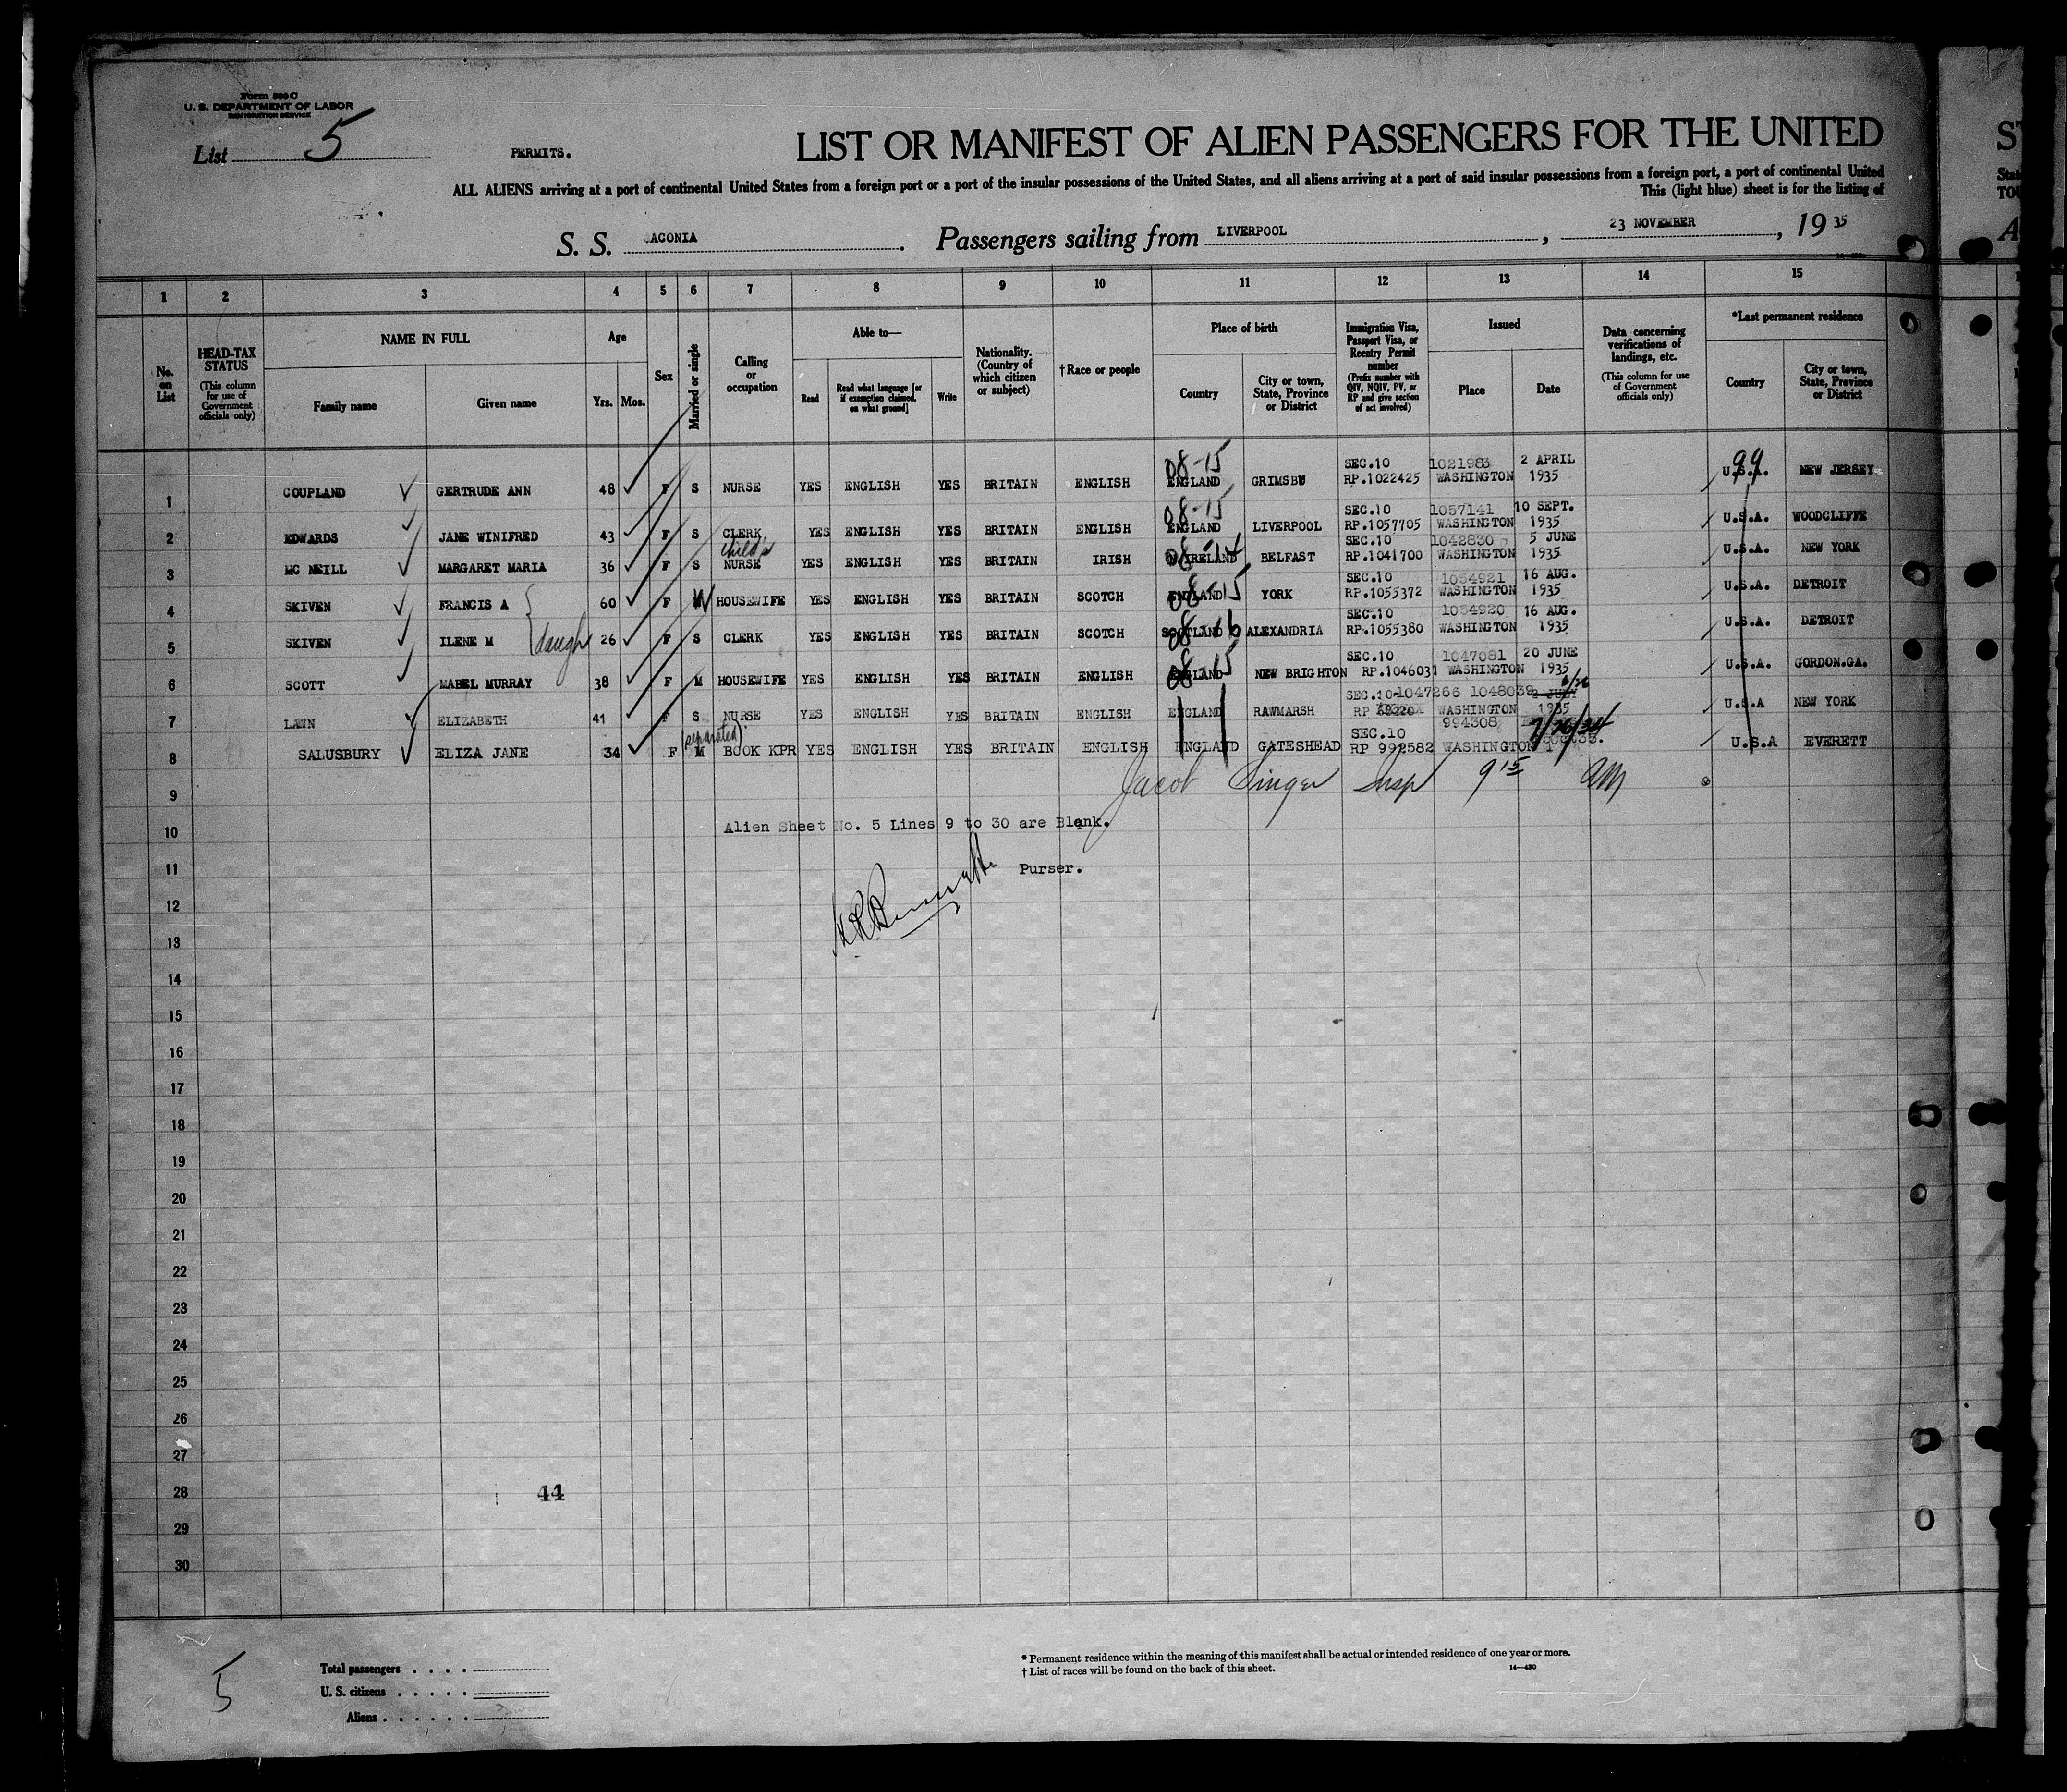 Form 500 C
U. S. DEPARTMENT OF LABOR
IMMIGRATION SERVICE
List 5
PERMITS.
LIST OR MANIFEST OF ALIEN PASSENGERS FOR THE UNITED
ALL ALIENS arriving at a port of continental United States from a foreign port or a port of the insular possessions of the United States, and all aliens arriving at a port of said insular possessions from a foreign port, a port of continental United
This (light blue) sheet is for the listing of
S. S. ACONIA. Passengers sailing from LIVERPOOL, 23 NOVEMBER, 19 35
1 2 3 4 5 6 7 8 9 10 11 12 13 14 15
No. on List
HEAD-TAX STATUS (This column for use of Government officials only)
NAME IN FULL
Family name
Given name
Age
Yrs. Mos.
Sex
Married or single
Calling or occupation
Able to—
Read
Read what language [or if exemption claimed, on what ground]
Write
Nationality. (Country of which citizen or subject)
† Race or people
Place of birth
Country
City or town, State, Province or District
Immigration Visa, Passport Visa, or Reentry Permit number (Prefix number with QIV, NQIV, PV, or RP and give section of act involved)
Issued
Place
Date
Data concerning verifications of landings, etc. (This column for use of Government officials only)
*Last permanent residence
Country
City or town, State, Province or District
08-15 SEC.10 1021983 2 APRIL 99
1 COUPLAND GERTRUDE ANN 48 F S NURSE YES ENGLISH YES BRITAIN ENGLISH ENGLAND GRIMSBY RP.1022425 WASHINGTON 1935 U.S.A. NEW JERSEY
08-15 SEC.10 1057141 10 SEPT.
2 EDWARDS JANE WINIFRED 43 F S CLERK YES ENGLISH YES BRITAIN ENGLISH ENGLAND LIVERPOOL RP.1057705 WASHINGTON 1935 U.S.A. WOODCLIFFE
child's SEC.10 1042830 5 JUNE
3 MC NEILL MARGARET MARIA 36 F S NURSE YES ENGLISH YES BRITAIN IRISH N.IRELAND BELFAST RP.1041700 WASHINGTON 1935 U.S.A. NEW YORK
08-15 SEC.10 1054921 16 AUG.
4 SKIVEN FRANCIS A 60 F W HOUSEWIFE YES ENGLISH YES BRITAIN SCOTCH ENGLAND YORK RP.1055372 WASHINGTON 1935 U.S.A. DETROIT
08-16 SEC.10 1054920 16 AUG.
5 SKIVEN ILENE M daugh 26 F S CLERK YES ENGLISH YES BRITAIN SCOTCH SCOTLAND ALEXANDRIA RP.1055380 WASHINGTON 1935 U.S.A. DETROIT
08-15 SEC.10 1047081 20 JUNE
6 SCOTT MABEL MURRAY 38 F M HOUSEWIFE YES ENGLISH YES BRITAIN ENGLISH ENGLAND NEW BRIGHTON RP.1046031 WASHINGTON 1935 U.S.A. GORDON.GA.
SEC.10 1047266 1048039 2 JULY 6/26
7 LAWN ELIZABETH 41 F S NURSE YES ENGLISH YES BRITAIN ENGLISH ENGLAND RAWMARSH RP WASHINGTON 1935 U.S.A NEW YORK
separated SEC.10 994308 7/26/34
8 SALUSBURY ELIZA JANE 34 F M BOOK KPR YES ENGLISH YES BRITAIN ENGLISH ENGLAND GATESHEAD RP 992582 WASHINGTON U.S.A EVERETT
9 Jacob Singer Insp 9 15 AM
10 Alien Sheet No. 5 Lines 9 to 30 are Blank.
11 Purser.
12
13
14
15
16
17
18
19
20
21
22
23
24
25
26
27
28 44
29
30
5
Total passengers
U. S. citizens
Aliens
* Permanent residence within the meaning of this manifest shall be actual or intended residence of one year or more.
† List of races will be found on the back of this sheet.
14—430